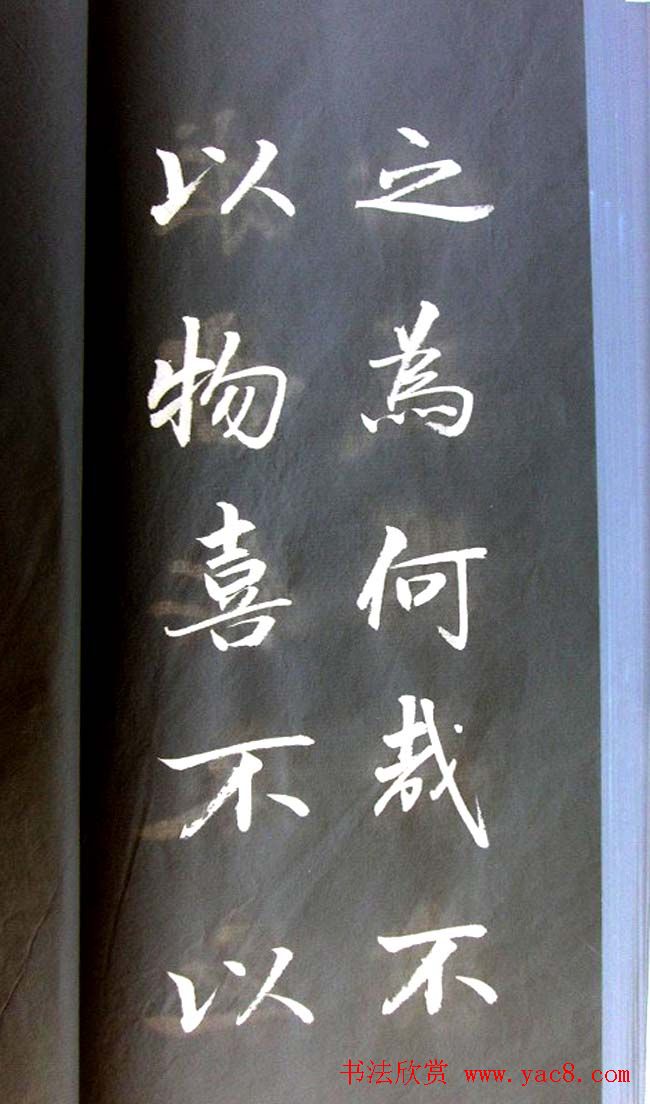 之為何哉不
以物喜不以
书法欣赏 www.yac8.com